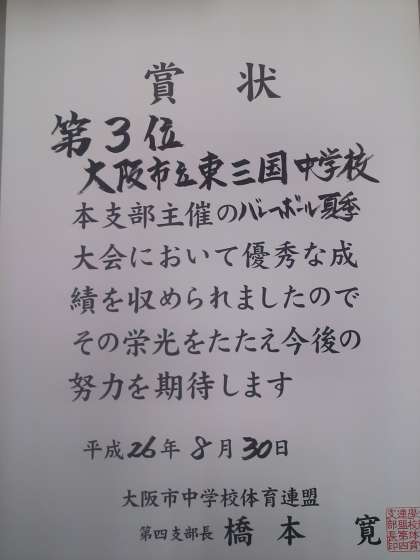 賞状
第3位
大阪市立東三国中学校
本支部主催のバレーボール夏季
大会において優秀な成
績を収められましたので
その栄光をたたえ今後の
努力を期待します
平成26年8月30日
大阪市中学校体育連盟
第四支部長 橋本 寛